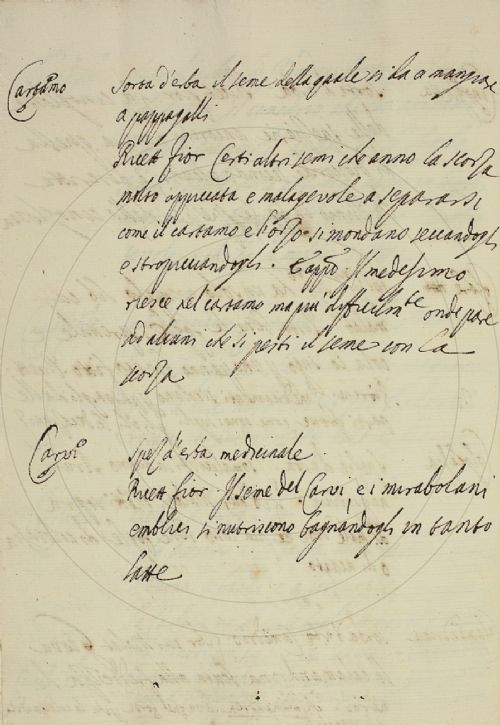 Cartamo Sorta d'erba il seme della quale si da a mangiare
a pappagalli
Ricett fior Certi altri semi che anno la scorza
molto appiccata e malagevole a separarsi
come il cartamo e l'orzo si mondano seccandogli
e stropicciandogli. E appo. Il medesimo
riesce nel cartamo ma piu' difficilmte onde pare
ad alcuni che si pesti il seme con la
scorza
Carvi Spez d'erba medicinale.
Ricett fior. Il seme del Carvi e i mirabolani
emblici si nutriscono bagnandogli in tanto
latte